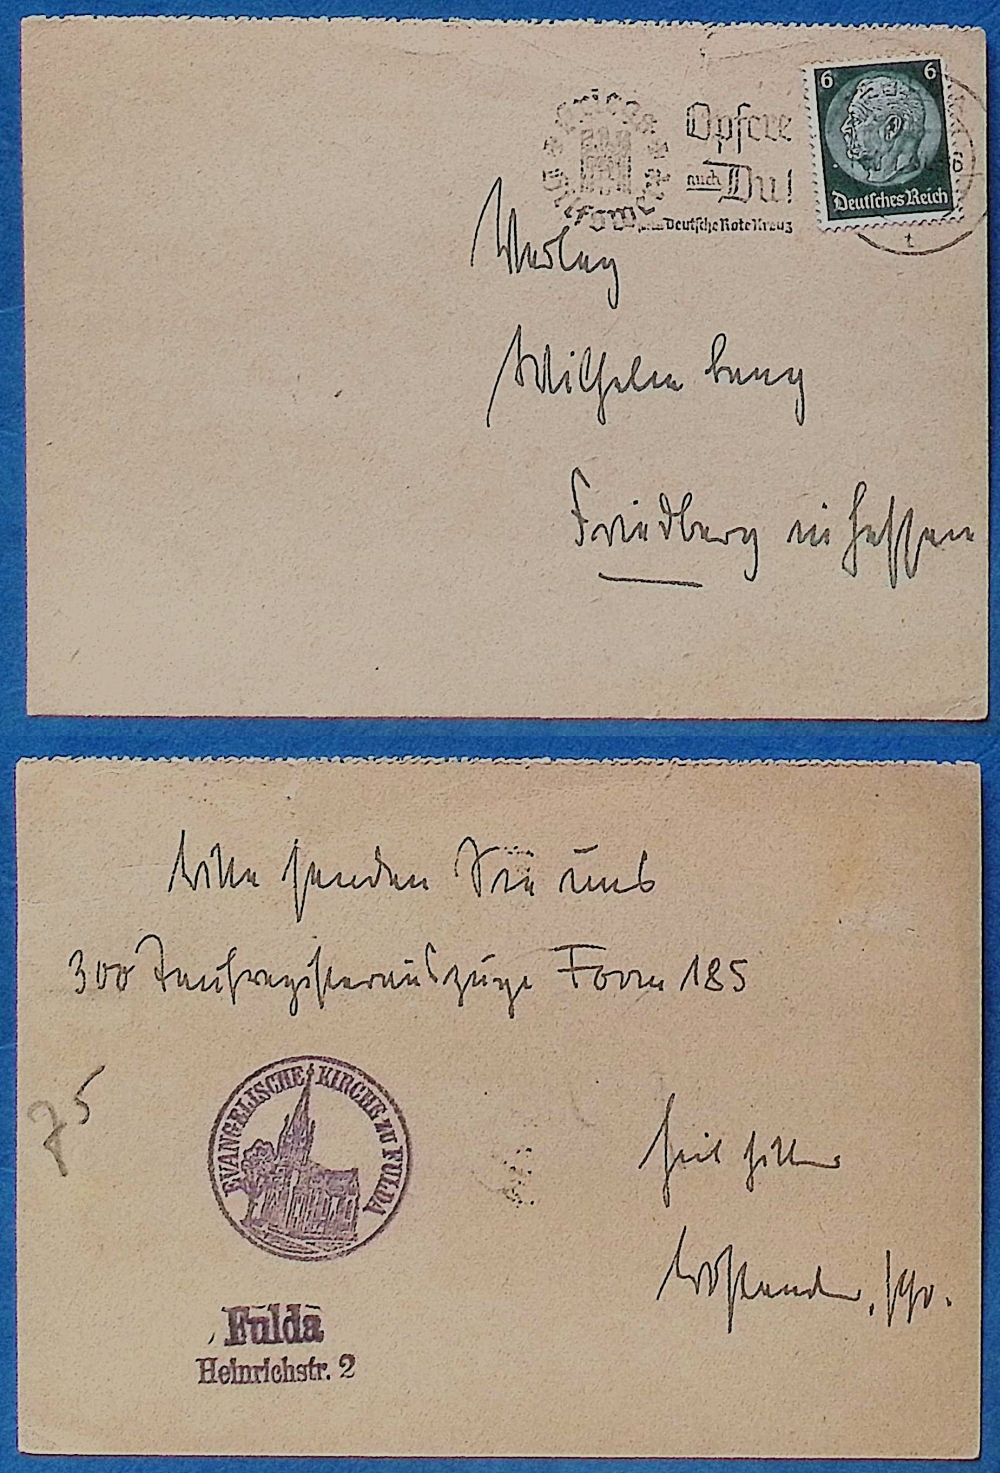 6 6
Deutsches Reich
Kriegs
Hilfswerk
Opfere
auch Du!
Deutsche Rote Kreuz
t
Verlag
Wilhelm
Friedberg in Hessen
Bitte senden Sie uns
300 Taufregisterauszüge Form 185
75
EVANGELISCHE KIRCHE ZU FULDA
Heil Hitler
Fulda
Heinrichstr. 2